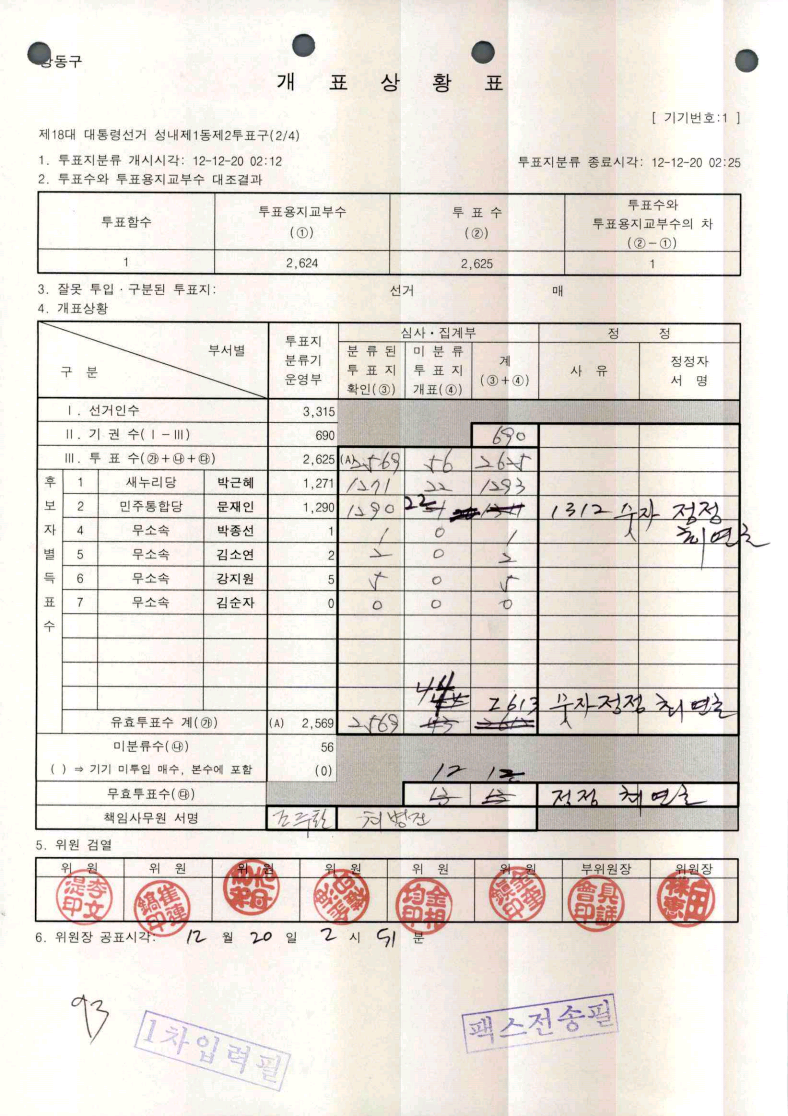 강동구
개 표 상 황 표
[ 기기번호:1 ]
제18대 대통령선거 성내제1동제2투표구(2/4)
1. 투표지분류 개시시각: 12-12-20 02:12 투표지분류 종료시각: 12-12-20 02:25
2. 투표수와 투표용지교부수 대조결과
투표함수 투표용지교부수 (①) 투 표 수 (②) 투표수와 투표용지교부수의 차 (②-①)
1 2,624 2,625 1
3. 잘못 투입ㆍ구분된 투표지: 선거 매
4. 개표상황
구 분 부서별 투표지 분류기 운영부 심사ㆍ집계부 정 정
분 류 된 투 표 지 확인(③) 미 분 류 투 표 지 개표(④) 계 (③+④) 사 유 정정자 서 명
Ⅰ. 선거인수 3,315
Ⅱ. 기 권 수(Ⅰ-Ⅲ) 690 690
Ⅲ. 투 표 수(㉮+㉯+㉰) 2,625 (A) 2569 56 2625
후보자별득표수
1 새누리당 박근혜 1,271 1271 22 1293
2 민주통합당 문재인 1,290 1290 22 1312 숫자 정정 최연호
4 무소속 박종선 1 1 0 1
5 무소속 김소연 2 2 0 2
6 무소속 강지원 5 5 0 5
7 무소속 김순자 0 0 0 0
유효투표수 계(㉮) (A) 2,569 2569 44 2613 숫자정정
미분류수(㉯) 56
( ) ⇒ 기기 미투입 매수, 본수에 포함 (0)
12 12
무효투표수(㉰) 정정
책임사무원 서명
5. 위원 검열
위 원 위 원 위 원 위 원 위 원 위 원 부위원장 위원장
6. 위원장 공표시각: 12 월 20 일 2 시 51 분
93
1차입력필
팩스전송필